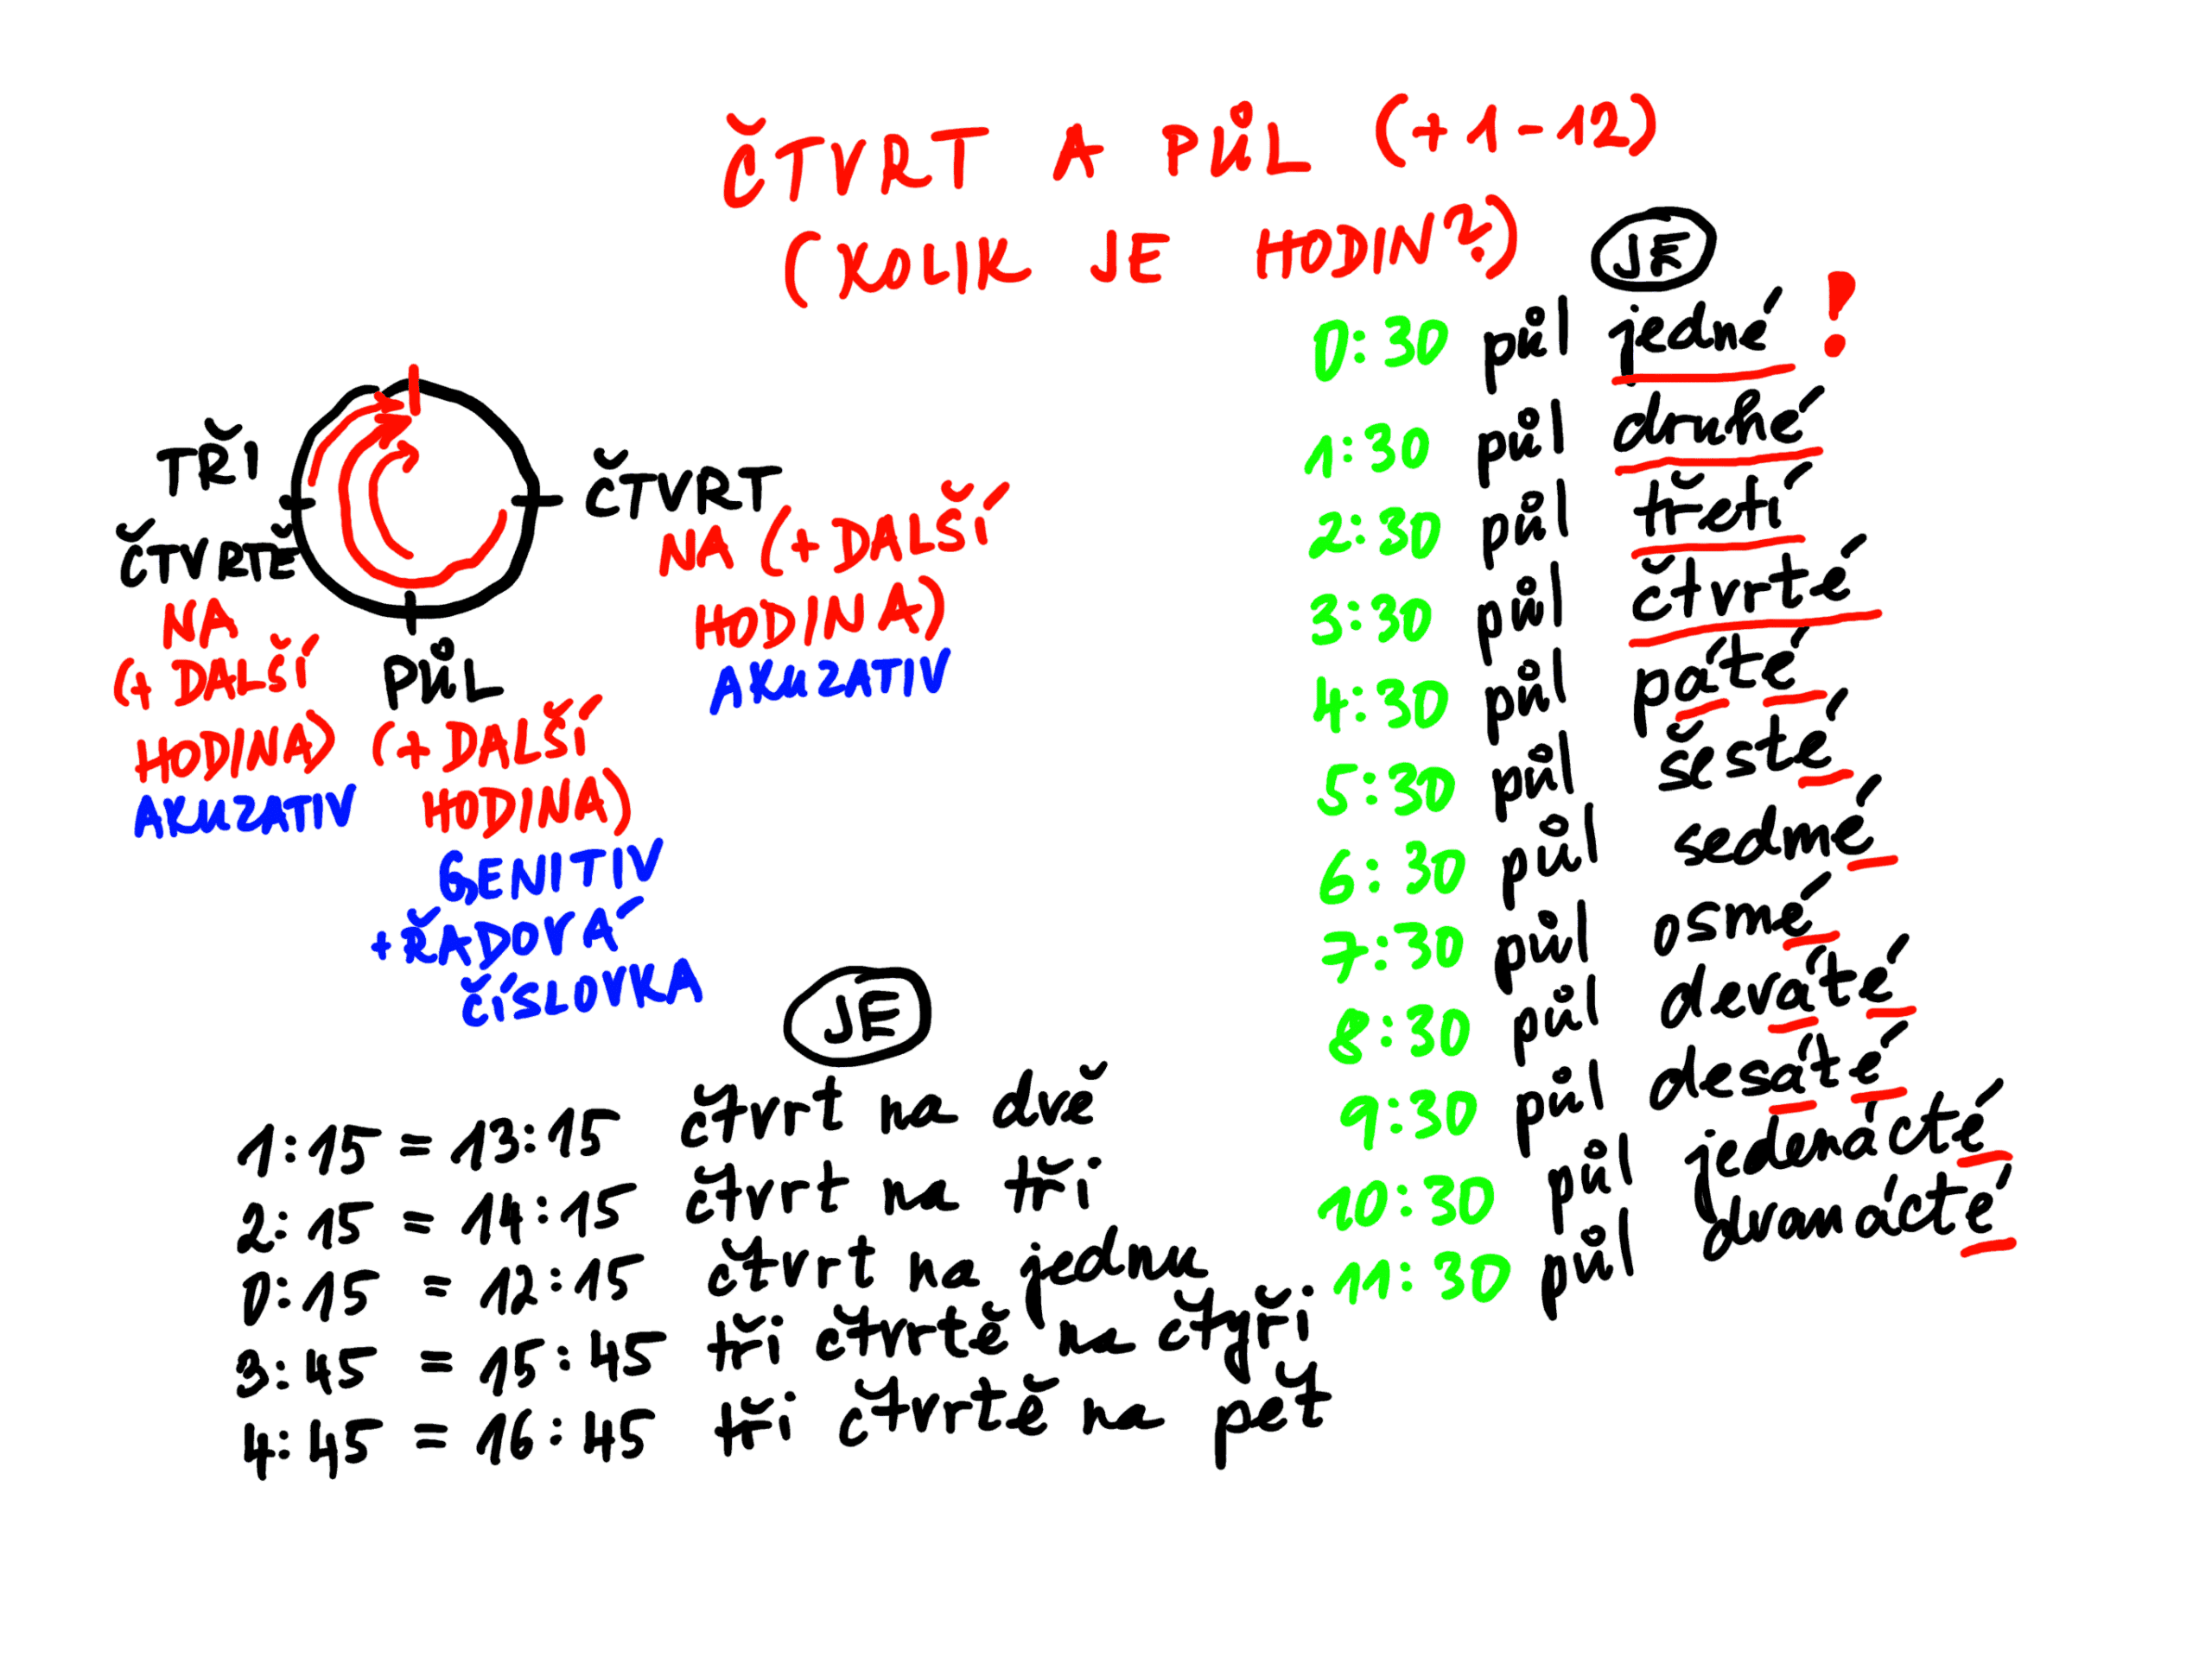 ČTVRT A PŮL (+1-12)
(KOLIK JE HODIN?)
TŘI
ČTVRTĚ
NA
(+ DALŠÍ
HODINA)
AKUZATIV
ČTVRT
NA (+ DALŠÍ
HODINA)
AKUZATIV
PŮL
(+ DALŠÍ
HODINA)
GENITIV
+ ŘADOVÁ
ČÍSLOVKA
JE
1:15 = 13:15 čtvrt na dvě
2:15 = 14:15 čtvrt na tři
0:15 = 12:15 čtvrt na jednu
3:45 = 15:45 tři čtvrtě na čtyři
4:45 = 16:45 tři čtvrtě na pět
JE
0:30 půl jedné !
1:30 půl druhé
2:30 půl třetí
3:30 půl čtvrté
4:30 půl páté
5:30 půl šesté
6:30 půl sedmé
7:30 půl osmé
8:30 půl deváté
9:30 půl desáté
10:30 půl jedenácté
11:30 půl dvanácté